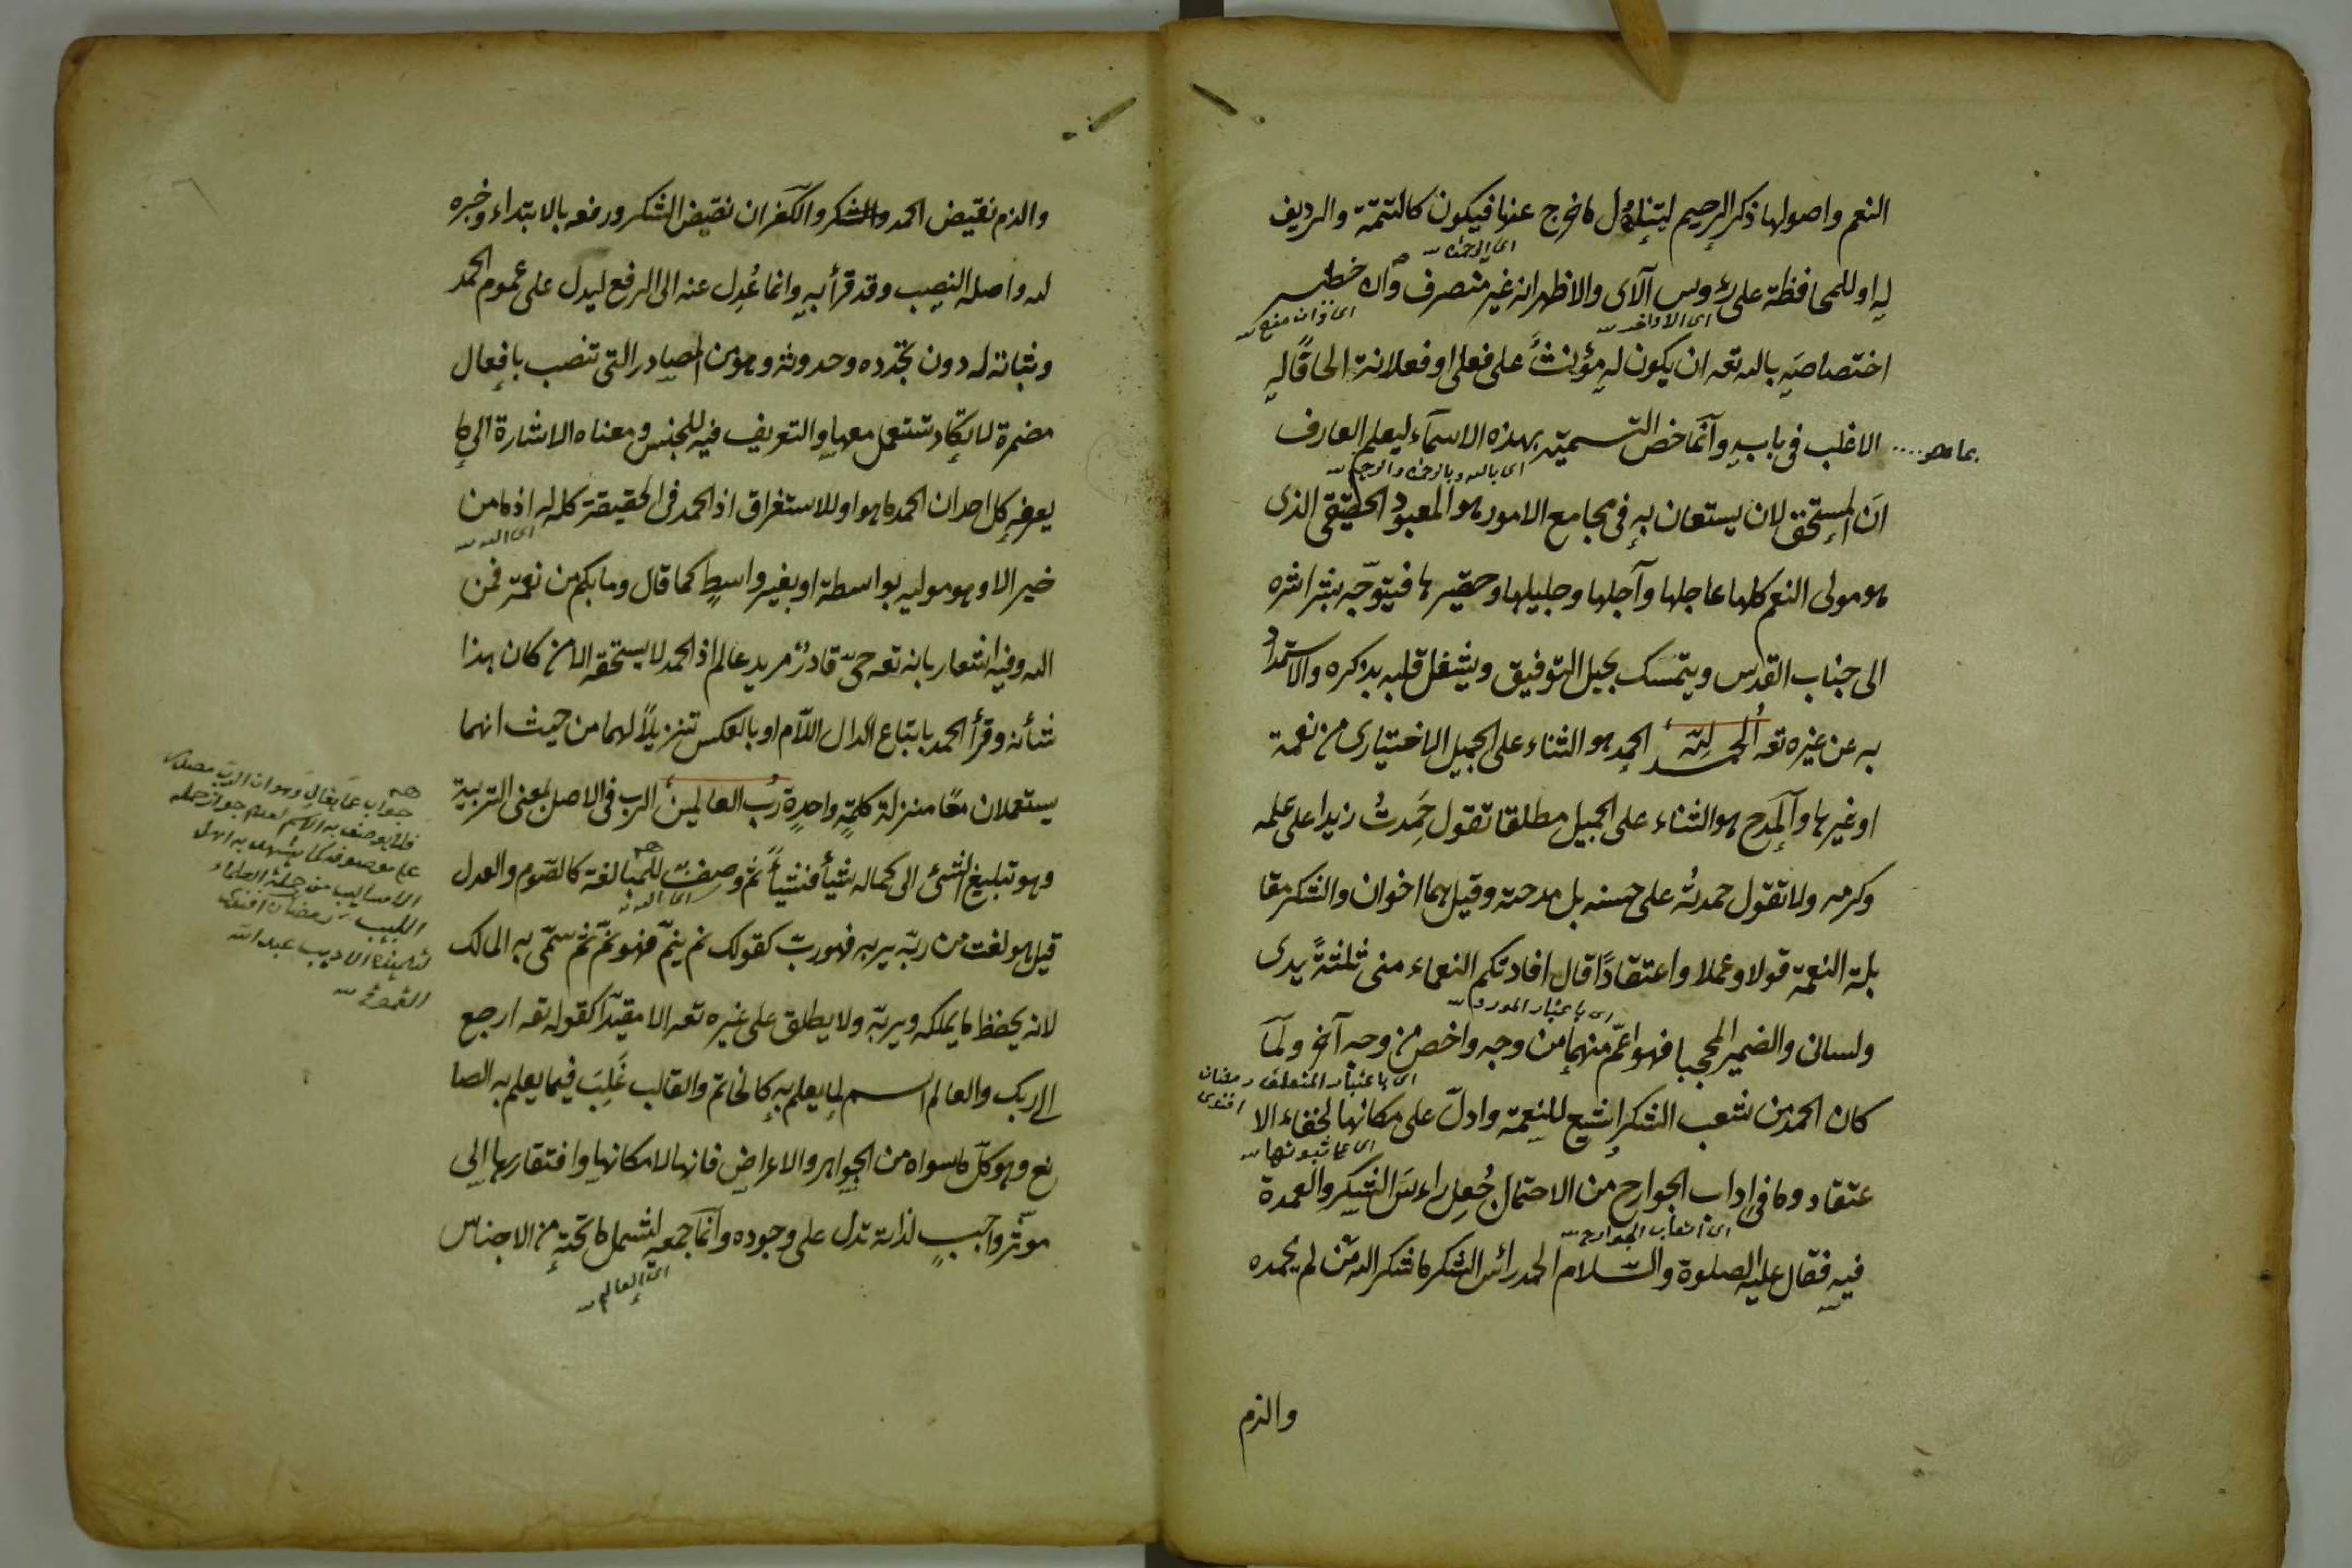 النعم واصولها ذكر الرحيم ليتناول ما خرج عنها فيكون كالتتمة والرديف
اى الرحمن
له او للمحافظة على رؤوس الآى والاظهر انه غير منصرف وان خطر
اى الاواخر
اى وان منع
اختصاصه بالله تعه ان يكون له مؤنث على فعلى او فعلانة الحاقًا له
بما هو .... الاغلب فى بابه وانّما خصّ التسمية بهذه الاسمآء ليعلم العارف
اى بالله وبالرحمن والرحيم
انّ المستحق لان يستعان به فى مجامع الامور هو المعبود الحقيقى الذى
هو مولى النعم كلها عاجلها وآجلها وجليلها وحقيرها فيتوجّه بشراشره
الى جناب القدس ويتمسك بحبل التوفيق ويشغل قلبه بذكره والاستمداد
به عن غيره تعه الحمد لله الحمد هو الثناء على الجميل الاختيارى من نعمة
او غيرها والمدح هو الثناء على الجميل مطلقا تقول حَمِدتُ زيدا على علمه
وكرمه ولا تقول حمدتُه على حسنه بل مدحته وقيل هما اخوان والشكر مقا
بلة النعمة قولا وعملا واعتقادًا قال افادتكم النعماء منى ثلثةً يدى
اى باعتبار المورد
ولسانى والضمير المحجبا فهو اعمّ منهما من وجه واخص من وجه آخر ولمّا
اى باعتبار المتعلق رمضان افندى
كان الحمد من شعب الشكر اشيع للنعمة وادلّ على مكانها لخفاء الا
اى على ثبوتها
عتقاد وما فى اداب الجوارح من الاحتمال جُعِل راءسَ الشكر والعمدة
اى اتعاب الجوارح
فيه فقال عليه الصلوة والسّلام الحمد رائس الشكر ما شكر الله من لم يحمده
والذم
والذم نقيض الحمد والشكر والكفران نقيض الشكر ورفعه بالابتداء وخبره
لله واصله النصب وقد قرأ به وانما عُدِل عنه الى الرفع ليدل على عموم الحمد
وثباته له دون تجدّده وحدوثه وهو من المصادر التى تنصب بافعال
مضمرة لا تكاد تستعمل معها والتعريف فيه للجنس ومعناه الاشارة الى ما
يعرفه كل احد ان الحمد ما هو او للاستغراق اذ الحمد فى الحقيقة كله له اذ ما من
اى الله
خير الا وهو موليه بواسطة او بغير واسط كما قال وما بكم من نعمة فمن
الله وفيه اشعار بانه تعه حىّ قادرٌ مريد عالم اذ الحمد لا يستحقه الا من كان هذا
شأنه وقرأ الحمد باتباع الدال اللّام او بالعكس تنزيلاً لهما من حيث انهما
يستعملان معًا منزلة كلمةٍ واحدةٍ ربّ العالمين الرب فى الاصل بمعنى التربية
وهو تبليغ الشئ الى كماله شيأً فشيأً ثمّ وصف للمبالغة كالصّوم والعدل
اى الله
قيل هو نعت من ربّه يربه فهو ربّ كقولك نم ينمّ فهو نمّ ثم سمّى به المالك
لانه يحفظ ما يملكه ويربّه ولا يطلق على غيره تعه الا مقيدًا كقوله تعه ارجع
الى ربك والعالم اسم لما يعلم به كالخاتم والقالب غَلِبَ فيما يعلم به الصا
نع وهو كلّ ما سواه من الجواهر والاعراض فانها لامكانها وافتقارها الى
موثر واجبٍ لذاته تدل على وجوده وانّما جمعه ليشمل ما تحته من الاجناس
اى العالم
جواب عمّا يقال وهو ان الربّ مصدر
فلا يوصف به الاسم لعدم جواز حمله
على موصوفه كما يشهد به اهل
الاساليب من جملة العلماء
اللبيب رمضان افندى
لتلميذه الاديب عبد الله